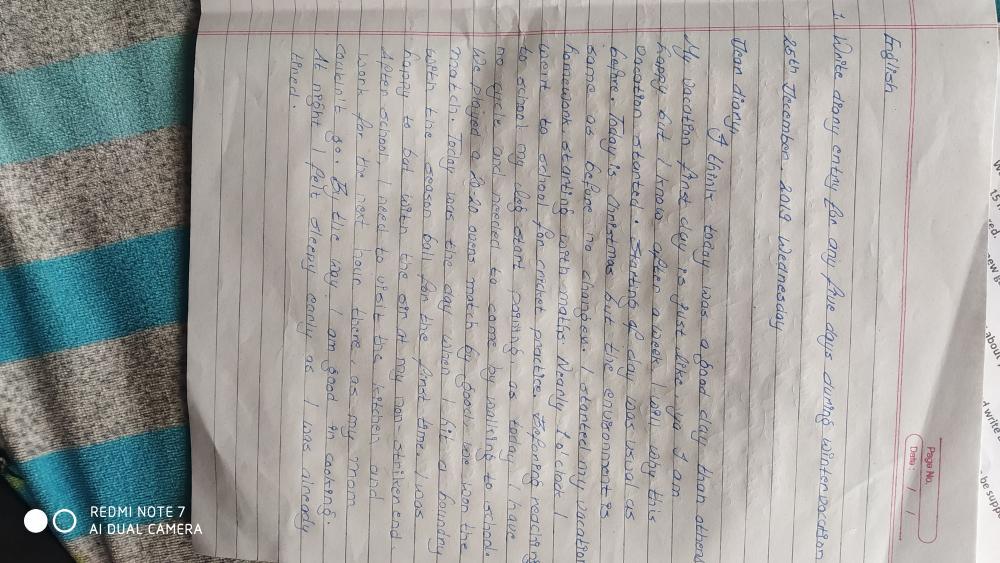 Page No.
Date: / /
English
1. Write diary entry for any five days during winter vacation
25th December, 2019 Wednesday
Dear diary
I think today was a good day than others
My vacation first day is just like, ya I am
happy but I know after a week I will why this
vacation started. Starting of day was usual as
before. Today is christmas but the environment is
same as before no changes. I started my vacation
homework starting with maths. Nearly 1 o'clok I
went to school for cricket practice. Before reaching
to school my leg start paining as today I have
no cycle and needed to come by walking to school.
We played a 20-20 overs match by good we won the
match. Today was the day when I hit a boundry
with the season ball for the first time. I was
happy to but with the sir at my non striker end.
After school I need to visit the kitchen and
work for the next hour there as my mom
couldn't go. By the way I am good in cooking.
At night I felt sleepy early as I was already
tired.
REDMI NOTE 7
AI DUAL CAMERA